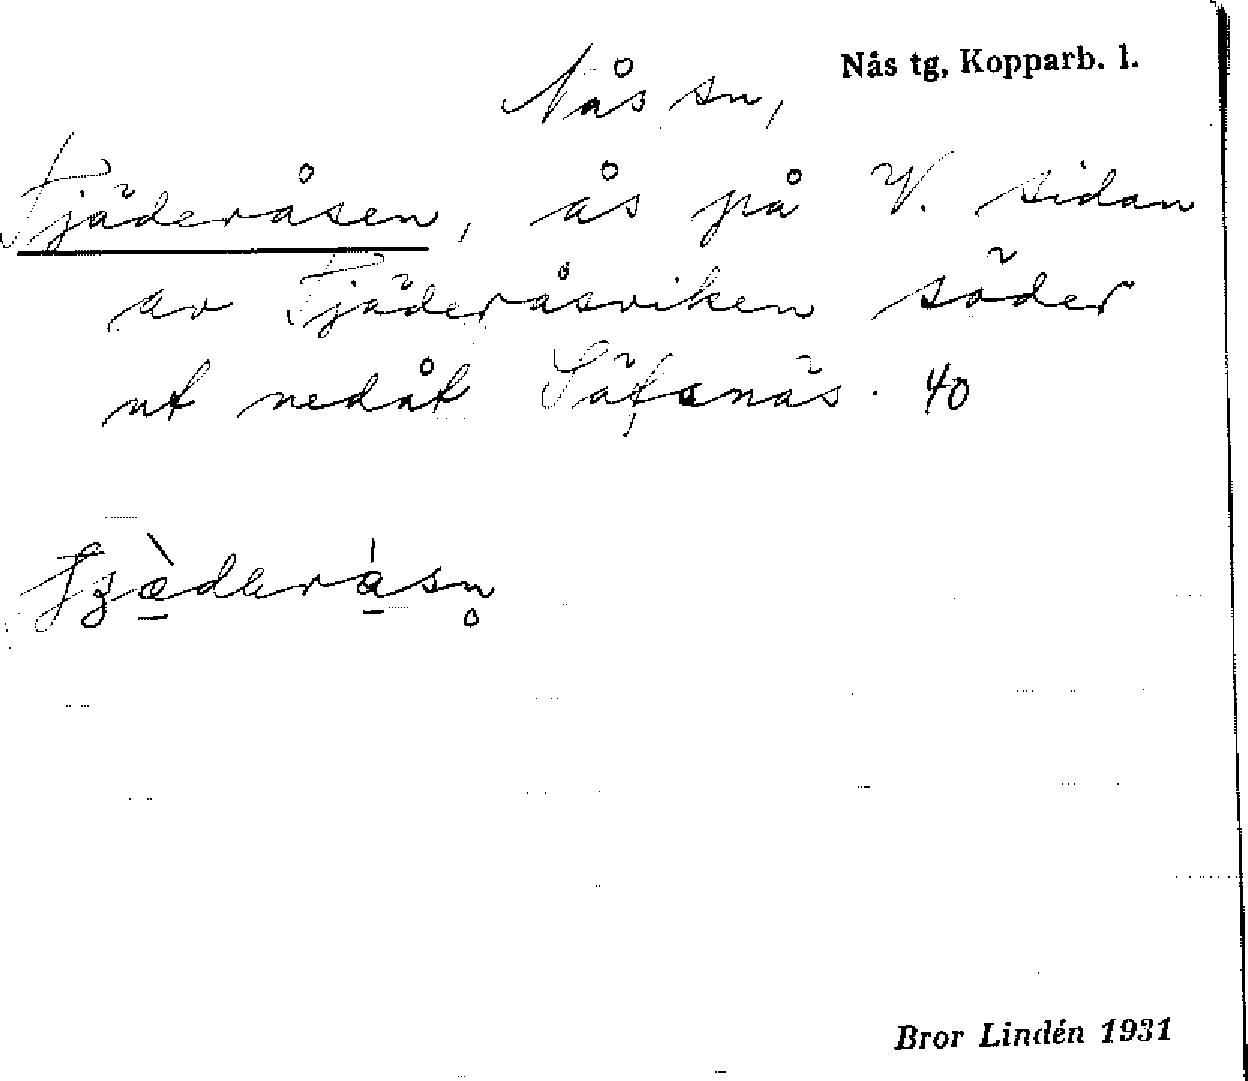 Nås tg, Kopparb. l.
Nås sn,
Fjäderåsen, ås på V. sidan
av Fjäderåsviken söder
ut nedåt Säfsnäs. 40
Bror Lindén 1931